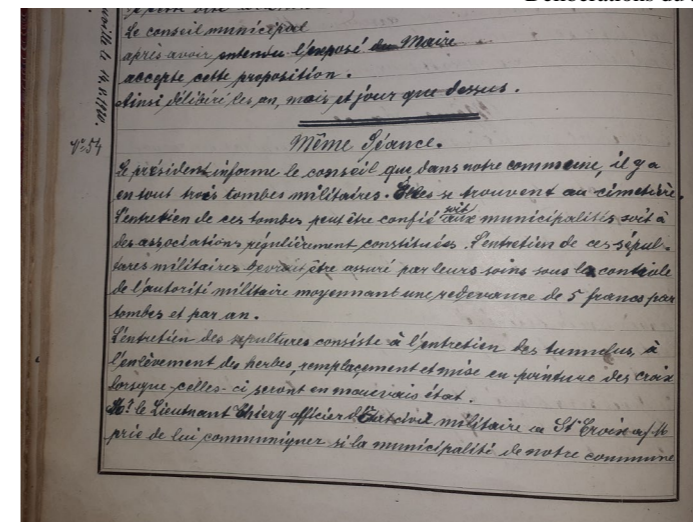 Délibérations du
Le conseil municipal
après avoir entendu l'exposé du Maire
accepte cette proposition.
Ainsi délibéré les an, mois et jour que dessus.
N° 54
Même Séance.
Le président informe le conseil que dans notre commune, il y a
en tout trois tombes militaires. Elles se trouvent au cimetière.
L'entretien de ces tombes peut être confié soit aux municipalités soit à
des associations régulièrement constituées. L'entretien de ces sépul-
tures militaires devrait être assuré par leurs soins sous la contrôle
de l'autorité militaire moyennant une redevance de 5 francs par
tombes et par an.
L'entretien des sépultures consiste à l'entretien des tumulus, à
l'enlèvement des herbes, remplacement et mise en peinture des croix
lorsque celles-ci seront en mauvais état.
Mr le Lieutnant Thiery officier d'Etat civil militaire à Ste Croix a/M
prie de lui communiquer si la municipalité de notre commune